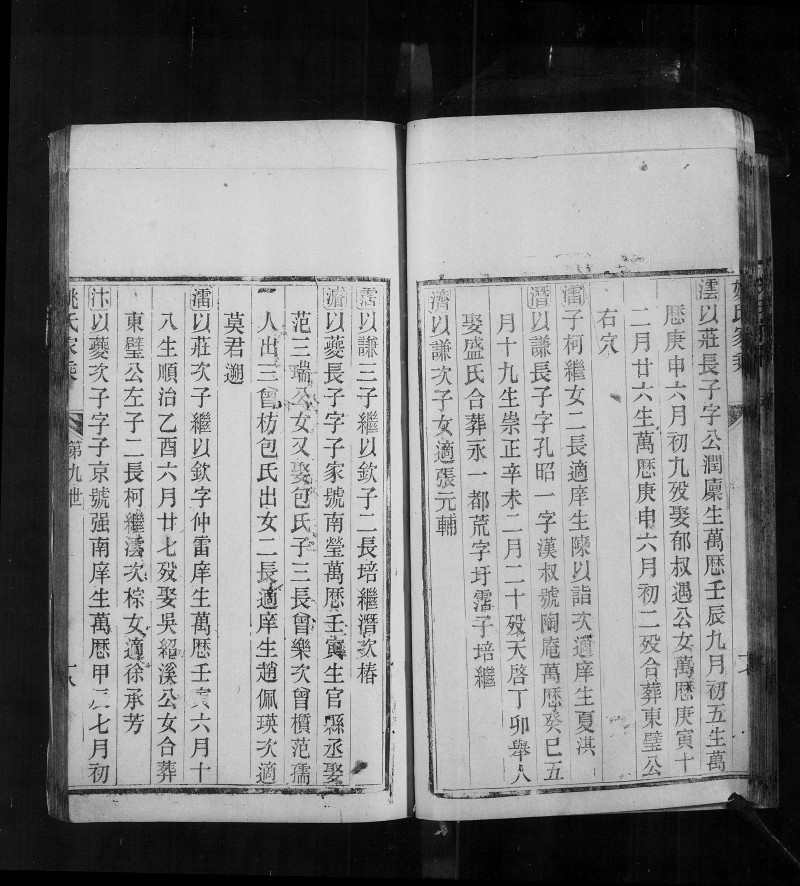 姚氏家乘
澐以莊長子字公潤廩生萬歷壬辰九月初五生萬
歷庚申六月初九歿娶郁叔遇公女萬歷庚寅十
二月廿六生萬歷庚申六月初二歿合葬東璧公
右穴
子柯繼女二長適庠生陳以詣次適庠生夏淇
潛以謙長子字孔昭一字漢叔號陶庵萬歷癸巳五
月十九生崇正辛未二月二十歿天啓丁卯舉人
娶盛氏合葬永一都荒字圩霑子培繼
濟以謙次子女適張元輔
霑以謙三子繼以欽子二長培繼潛次椿
以夔長子字子家號南瑩萬歷壬寅生官縣丞娶
范三瑞公女又娶包氏子三長曾樂次曾櫝范孺
人出三曾枋包氏出女二長適庠生趙佩瑛次適
莫君遡
以莊次子繼以欽字仲雷庠生萬歷壬寅六月十
八生順治乙酉六月廿七歿娶吳紹溪公女合葬
東璧公左子二長柯繼澐次棕女適徐承芳
汴以夔次子字子京號强南庠生萬歷甲辰七月初
姚氏家乘
第九世
十八